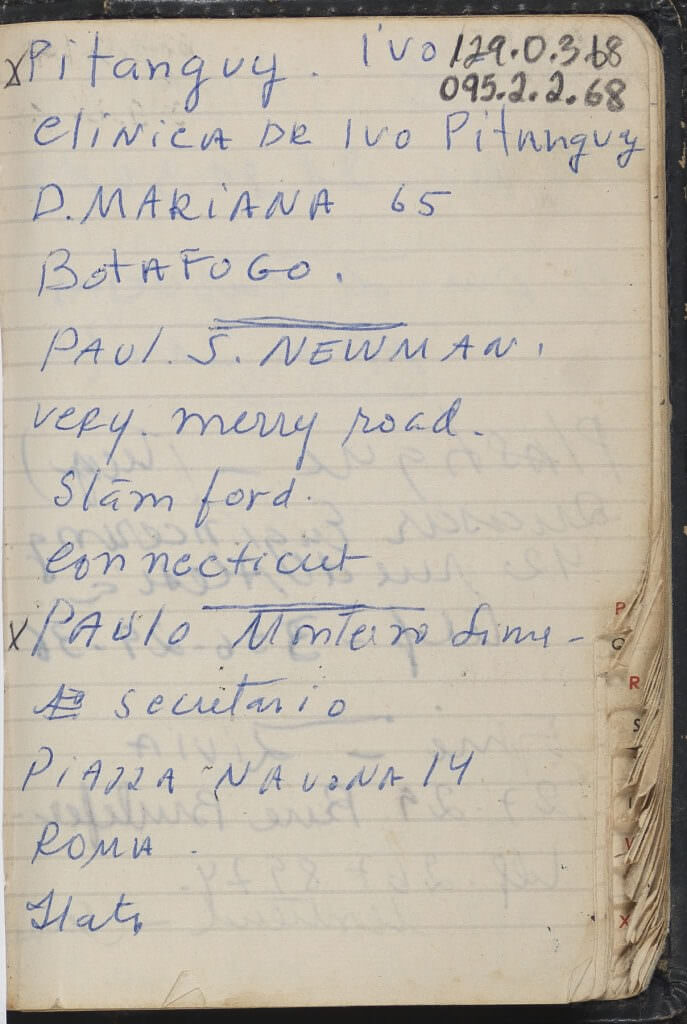 x Pitanguy. Ivo 129.0.3.68
095.2.2.68
CliNiCA DR Ivo Pitanguy
D. MARiANA 65
BotAFOGO.
PAUl. S. NEWMAN.
very. merry road.
Stamford.
Connecticut
x PAUlo Monteiro Lima -
secretario
PiAZZA NAVONA 14
ROMA.
P
Q
R
S
V
X